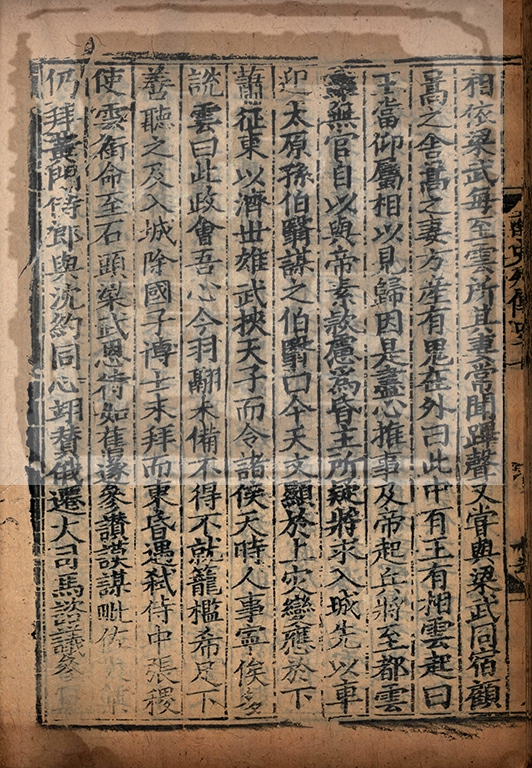 相依梁武每至雲所其妻常聞蹕聲又嘗與梁武同宿顧
暠之舍暠之妻方産有鬼在外曰此中有王有相雲起曰
王當仰屬相以見歸因是盡心推事及帝起兵將至都雲
無官自以與帝素款慮爲昏主所疑將求入城先以車
迎太原孫伯翳謀之伯翳曰今天文顯於上灾變應於下
蕭征東以濟世雄武挾天子而令諸侯天時人事寧俟多
説雲曰此政會吾心今羽翮未備不得不就籠檻希足下
善聽之及入城除國子博士未拜而東昏遇弑侍中張稷
使雲銜命至石頭梁武恩待如舊遂參讚謨謀毗佐大業
仍拜黄門侍郎與沈約同心翊賛俄遷大司馬諮議參